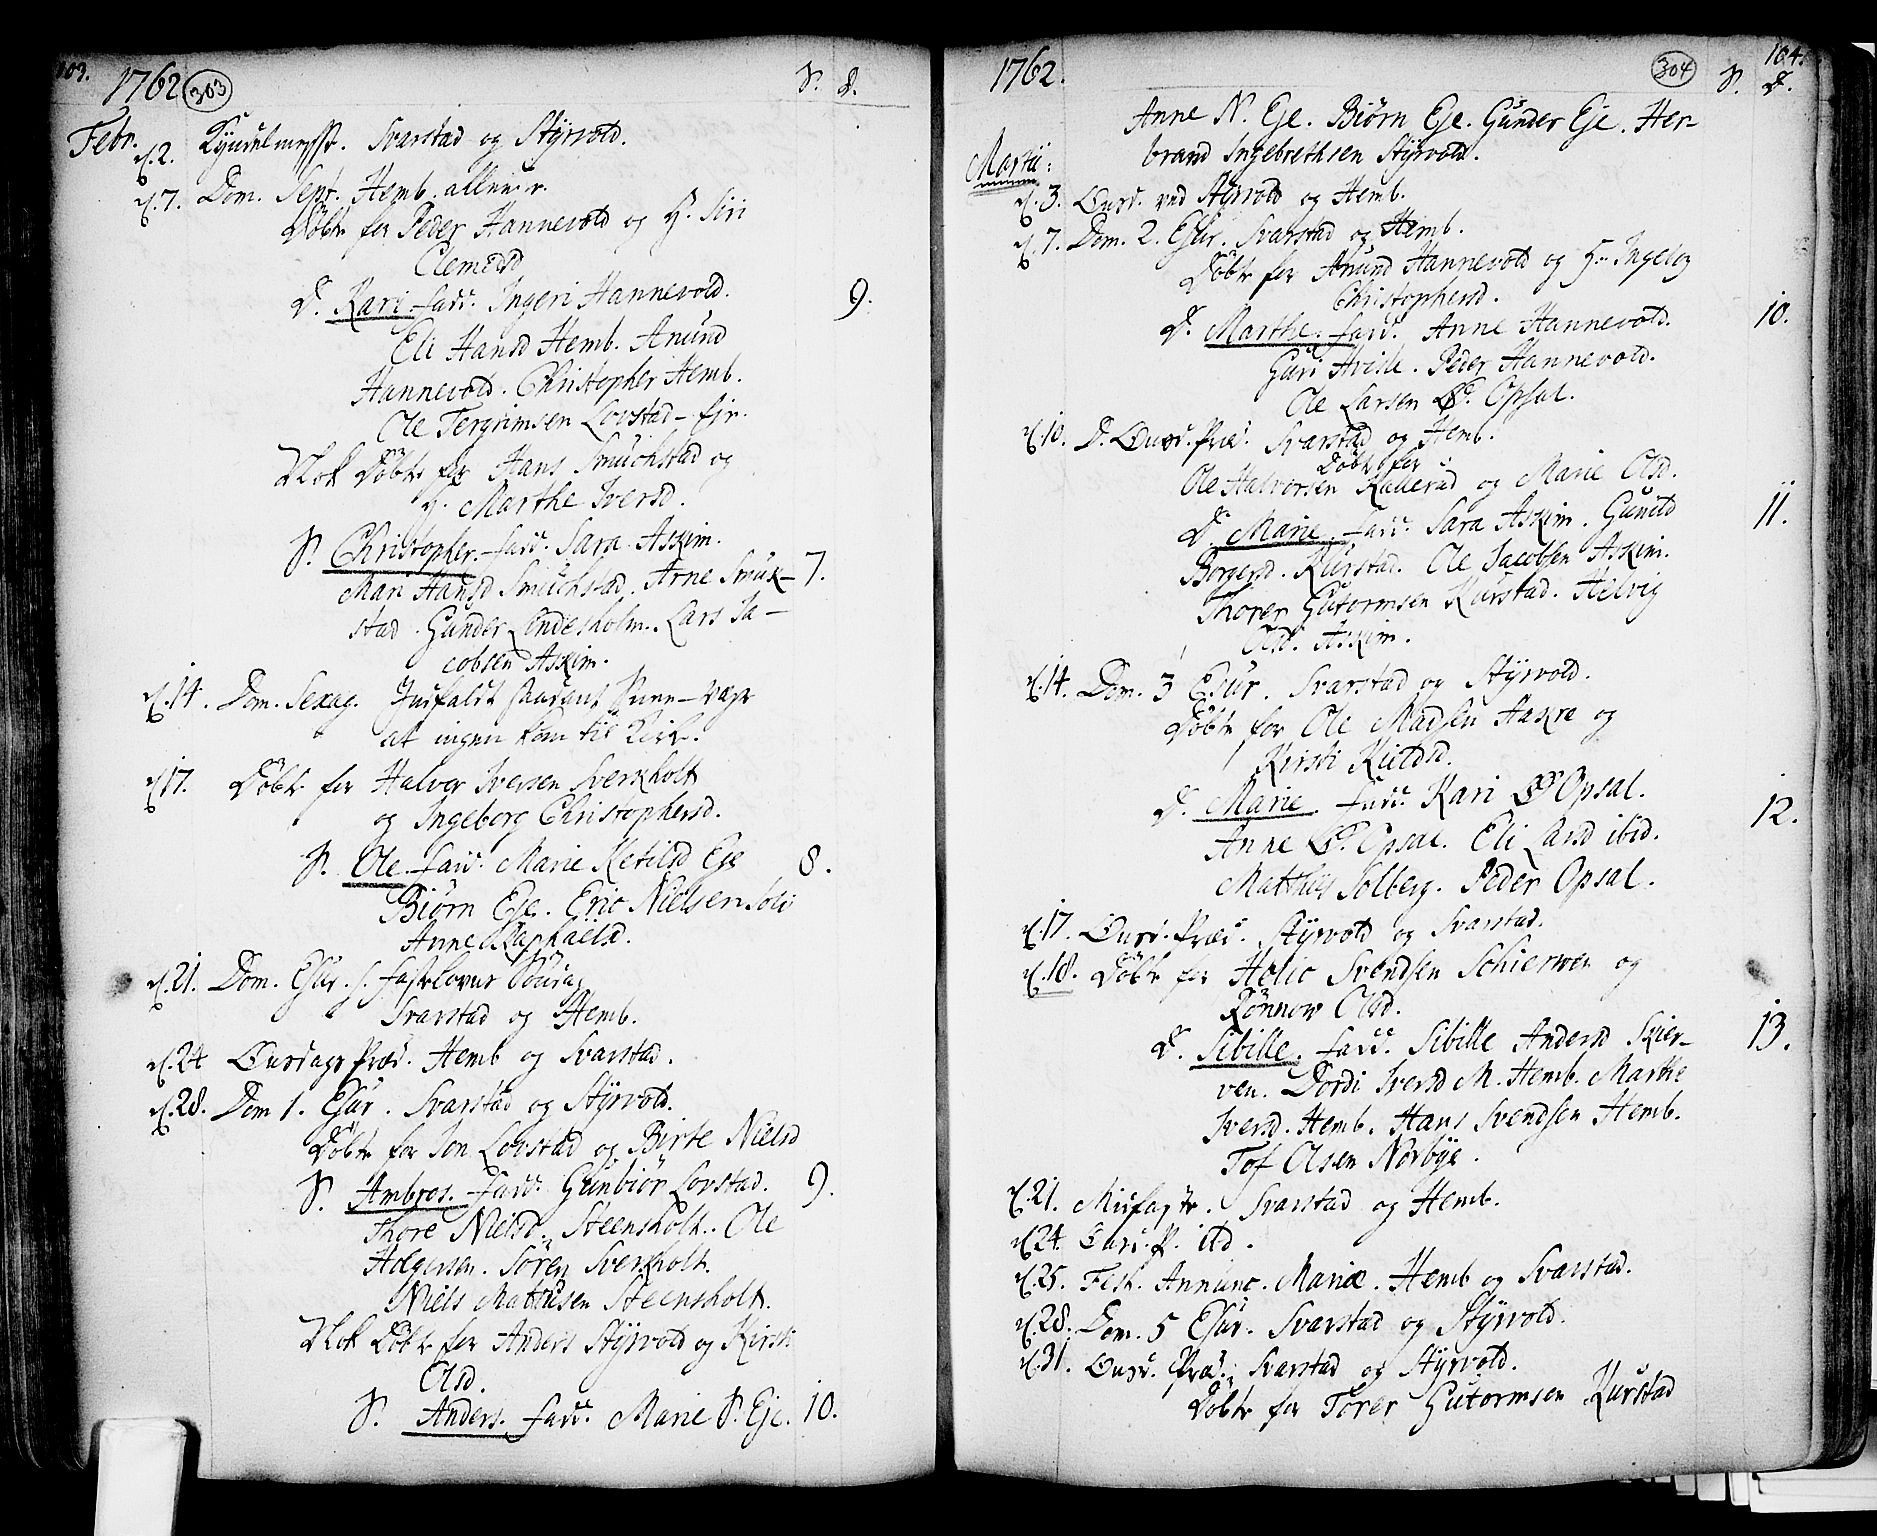 103.
1762 303
S. D.
Febr.
d. 2. Kyndelmesse. Svarstad og Styrvold.
d. 7. Dom. Sept. Hemb. allene.
Døbt for Peder Hannevold og H. Siri
Clemedsd
D. Kari. Fadd. Ingeri Hannevold. 9.
Eli Hansd Hemb. Anund
Hannevold. Christopher Hemb.
Ole Tergrimsen Lovstad
Nok Døbt for Hans Smuchstad og
H. Marthe Iversd.
S. Christopher. Fadd. Sara Askim.
Mari Hansd Smuchstad. Arne Smuk- 7.
stad. Gunder Lindesholm. Lars Ja-
cobsen Askim.
d. 14. Dom. Sexag. Indfaldt saadant
at ingen kom til Kirke.
d. 17. Døbt for Halvor Iversen Sverkholt
og Ingeborg Christophersd.
S. Ole. Fadd. Marie Ketilsd Eje 8.
Biørn Eje. Eric Nielsen Soli
Anne Raphaelsd.
d. 21. Dom. Esto. s. Fastelovns Søndag
Svarstad og Hemb.
d. 24 Onsdags Præd. Hemb og Svarstad.
d. 28. Dom 1. Qvadr. Svarstad og Styrvold.
Døbt for Jon Lovstad og Birte Nielsd
S. Ambros. Fadd. Gunbiør Lovstad. 9.
Thore Nielsd. Steensholt. Ole
Holgersen. Søren Sverkholt.
Niels Mathisen Steensholt.
Nok Døbt for Anders Styrvold og Kirsti
Olsd.
S. Anders. Fadd. Marie S. Eje. 10.
1762. 304 104.
S. D.
Anne N. Eje. Biørn Eje. Gunder Eje. Her-
brand Ingebrethsen Styrvold.
Martii.
d. 3. Onsd. ved Styrvold og Hemb.
d. 7. Dom. 2. Qvadr. Svarstad og Hemb.
Døbt for Anund Hannevold og H. Ingebor
Christophersd.
D. Marthe. Fadd. Anne Hannevold. 10.
Guri Hvisle. Peder Hannevold.
Ole Larsen Opsal.
d. 10. D. Onsd. Præd. Svarstad og Hemb.
Døbt for
Ole Halvorsen Kallerud og Marie Olsd.
D. Marie. Fadd. Sara Askim. Gunild 11.
Borgersd. Kurstad. Ole Jacobsen Askim.
Thorer Gutormsen Kurstad. Helvig
Olsd. Askim.
d. 14. Dom. 3 Qvadr. Svarstad og Styrvold.
Døbt for Ole Madsen Haskre og
Kirsti Kieldsd.
D. Marie. Fadd. Kari Opsal. 12.
Anne Opsal. Eli Larsd ibid.
Matthis Solberg. Peder Opsal.
d. 17. Onsd. Præd. Styrvold og Svarstad.
d. 18. Døbt for Helie Svendsen Schierven og
Rønnow Olsd.
D. Sibille. Fadd. Sibille Andersd Skier- 13.
ven. Dordi Iversd M. Hemb. Marthe
Iversd. Hemb. Hans Svendsen Hemb.
Tof Olsen Nørbye.
d. 21. Midfaste. Svarstad og Hemb.
d. 24. Onsd. P. itd.
d. 25. Fest. Annunc. Mariæ. Hemb og Svarstad.
d. 28. Dom. 5 Qvadr. Svarstad og Styrvold.
d. 31. Onsd. Præd. Svarstad og Styrvold.
Døbt for Torer Gutormsen Kurstad